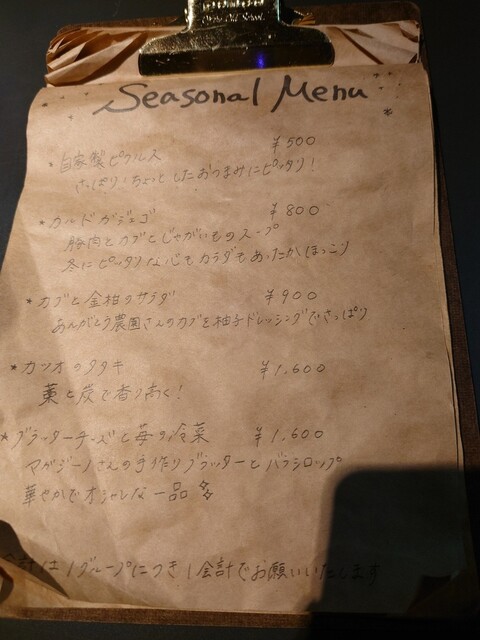 Seasonal Menu
自家製ピクルス ¥500
さっぱり!ちょっとしたおつまみにピッタリ!
カルドガジェゴ ¥800
豚肉とカブとじゃがいものスープ
冬にピッタリな心もカラダもあったかほっこり
カブと金柑のサラダ ¥900
ありがとう農園さんのカブを柚子ドレッシングでさっぱり
カツオのタタキ ¥1,600
藁と炭で香り高く!
ブラッターチーズと苺の冷菜 ¥1,600
マガジーノさんの手作りブラッターとバラシロップ
華やかでオシャレな一品
会計は1グループにつき1会計でお願いいたします